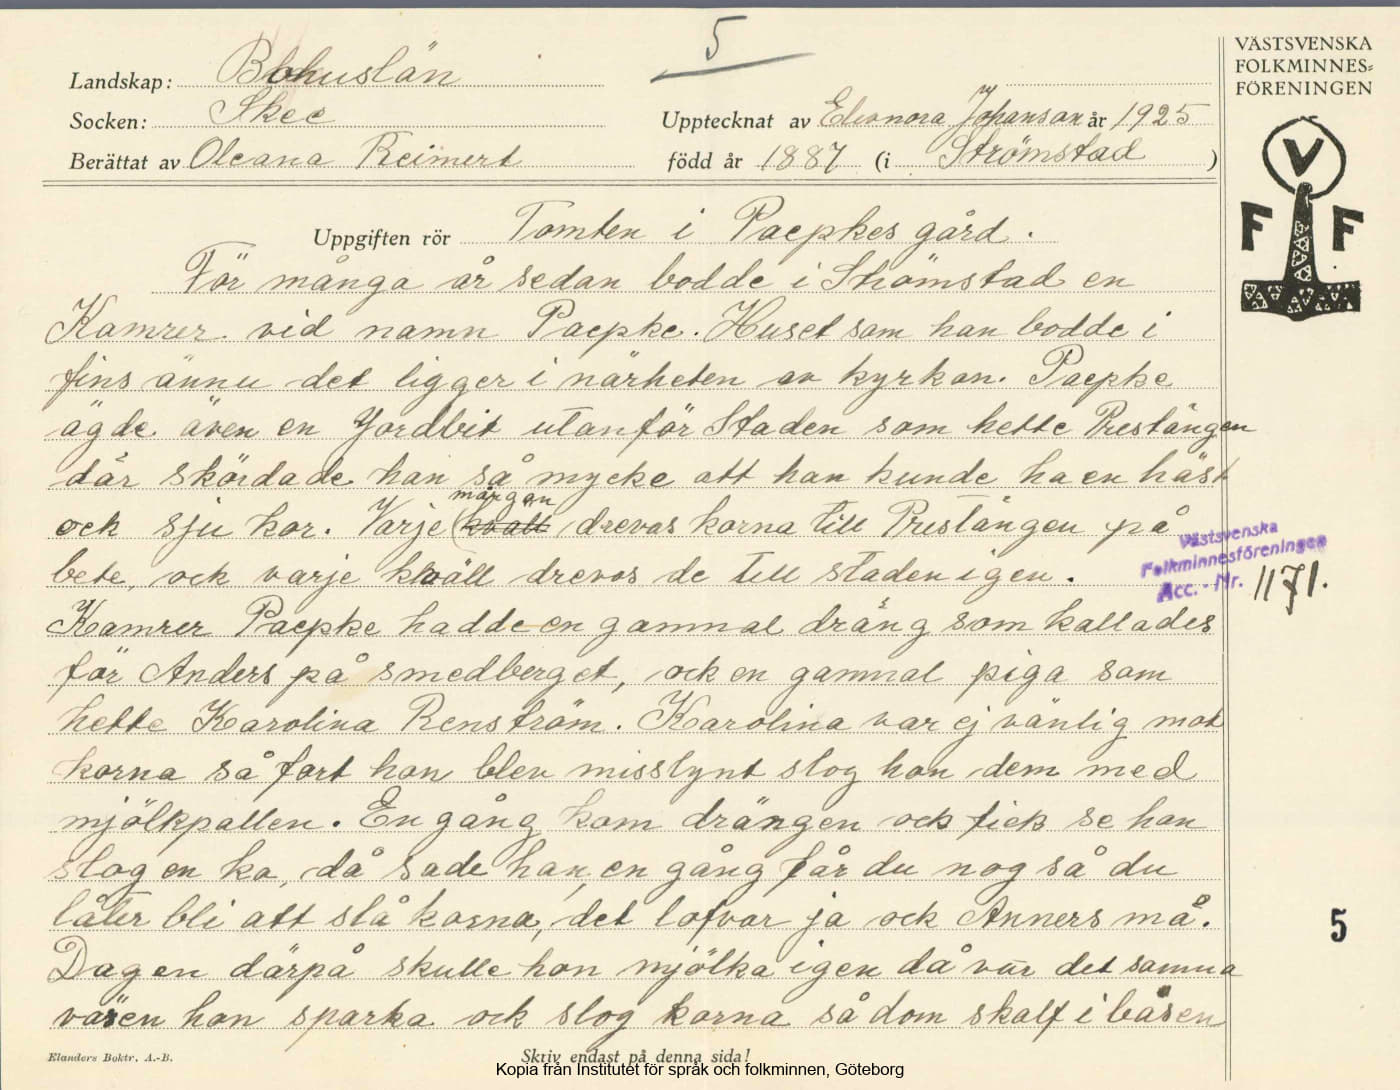 5
VÄSTSVENSKA
FOLKMINNES=
FÖRENINGEN
Landskap: Bohuslän
Socken: Skee
Upptecknat av Eleonora Johanson år 1925
Berättat av Oleana Reimert född år 1887 (i Strömstad )
V
F F
Uppgiften rör Tomten i Paepkes gård.
För många år sedan bodde i Strömstad en
Kamrer vid namn Paepke. Huset som han bodde i
fins ännu det ligger i närheten av kyrkan. Paepke
ägde även en Jordbit utanför Staden som hette Prestängen
där skördade han så mycke att han kunde ha en häst
ock sju kor. Varje (kväll morgon drevos korna till Prestängen på
bete, ock varje kväll drevos de till staden igen.
Västsvenska
Folkminnesföreningen
Acc. - Nr. 1171.
Kamrer Paepke hadde en gammal dräng som kallades
för Anders på smedberget, ock en gammal piga som
hette Karolina Renström. Karolina var ej vänlig mot
korna så fort hon blev misslynt slog hon dem med
mjölkpallen. En gång kom drängen ock fick se hon
slog en ko, då sade han, en gång får du nog så du
låter bli att slå korna, det lofvar ja ock Anners må.
5
Dagen därpå skulle hon mjölka igen då var det samma
väsen hon sparka ock slog korna så dom skalf i båsen
Elanders Boktr. A.-B.
Skriv endast på denna sida!
Kopia från Institutet för språk och folkminnen, Göteborg